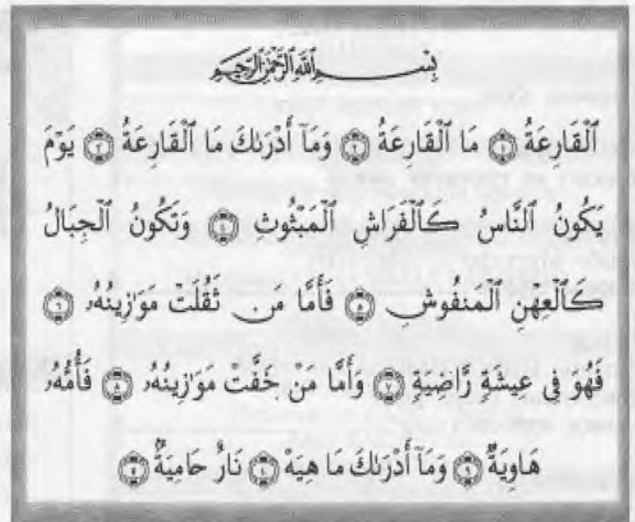 بِسْمِ ٱللَّهِ ٱلرَّحْمَٰنِ ٱلرَّحِيمِ
ٱلْقَارِعَةُ ١ مَا ٱلْقَارِعَةُ ٢ وَمَآ أَدْرَىٰكَ مَا ٱلْقَارِعَةُ ٣ يَوْمَ
يَكُونُ ٱلنَّاسُ كَٱلْفَرَاشِ ٱلْمَبْثُوثِ ٤ وَتَكُونُ ٱلْجِبَالُ
كَٱلْعِهْنِ ٱلْمَنفُوشِ ٥ فَأَمَّا مَن ثَقُلَتْ مَوَٰزِينُهُۥ ٦
فَهُوَ فِى عِيشَةٍ رَّاضِيَةٍ ٧ وَأَمَّا مَنْ خَفَّتْ مَوَٰزِينُهُۥ ٨ فَأُمُّهُۥ
هَاوِيَةٌ ٩ وَمَآ أَدْرَىٰكَ مَا هِيَهْ نَارٌ حَامِيَةٌۢ